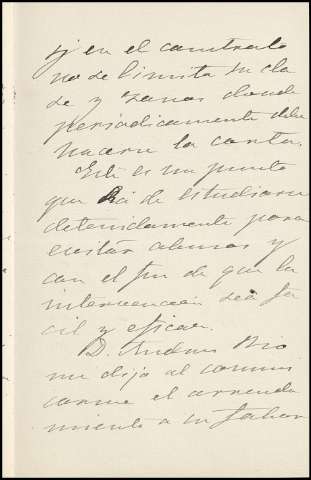 si en el contrato
no se limita su cla
se y zonas donde
periódicamente debe
hacerse la corta.
Este es un punto
que ha de estudiarse
detenidamente para
evitar abusos y
con el fin de que la
intervención sea fa
cil y eficaz.
D. Andres Rio
me dijo al comuni
carme el arrenda
miento a su favor